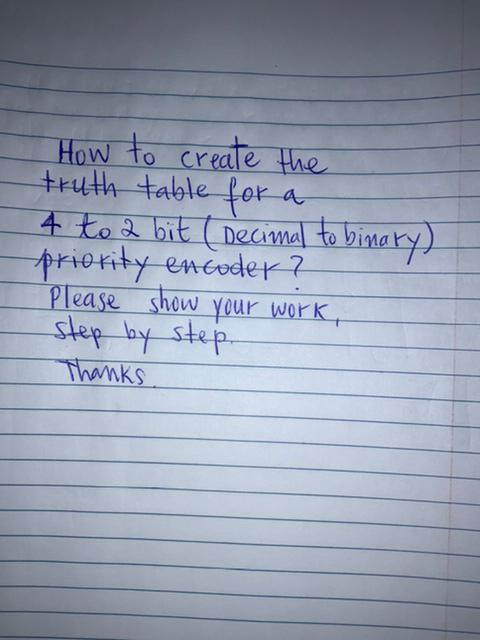 How to create the
truth table for a
4 to 2 bit (Decimal to binary)
priority encoder?
Please show your work,
step by step.
Thanks.